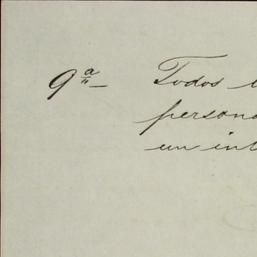 9ª Todos
persona
un int